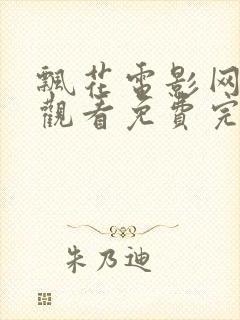 飄花電影网
觀看免費完
朱乃迪